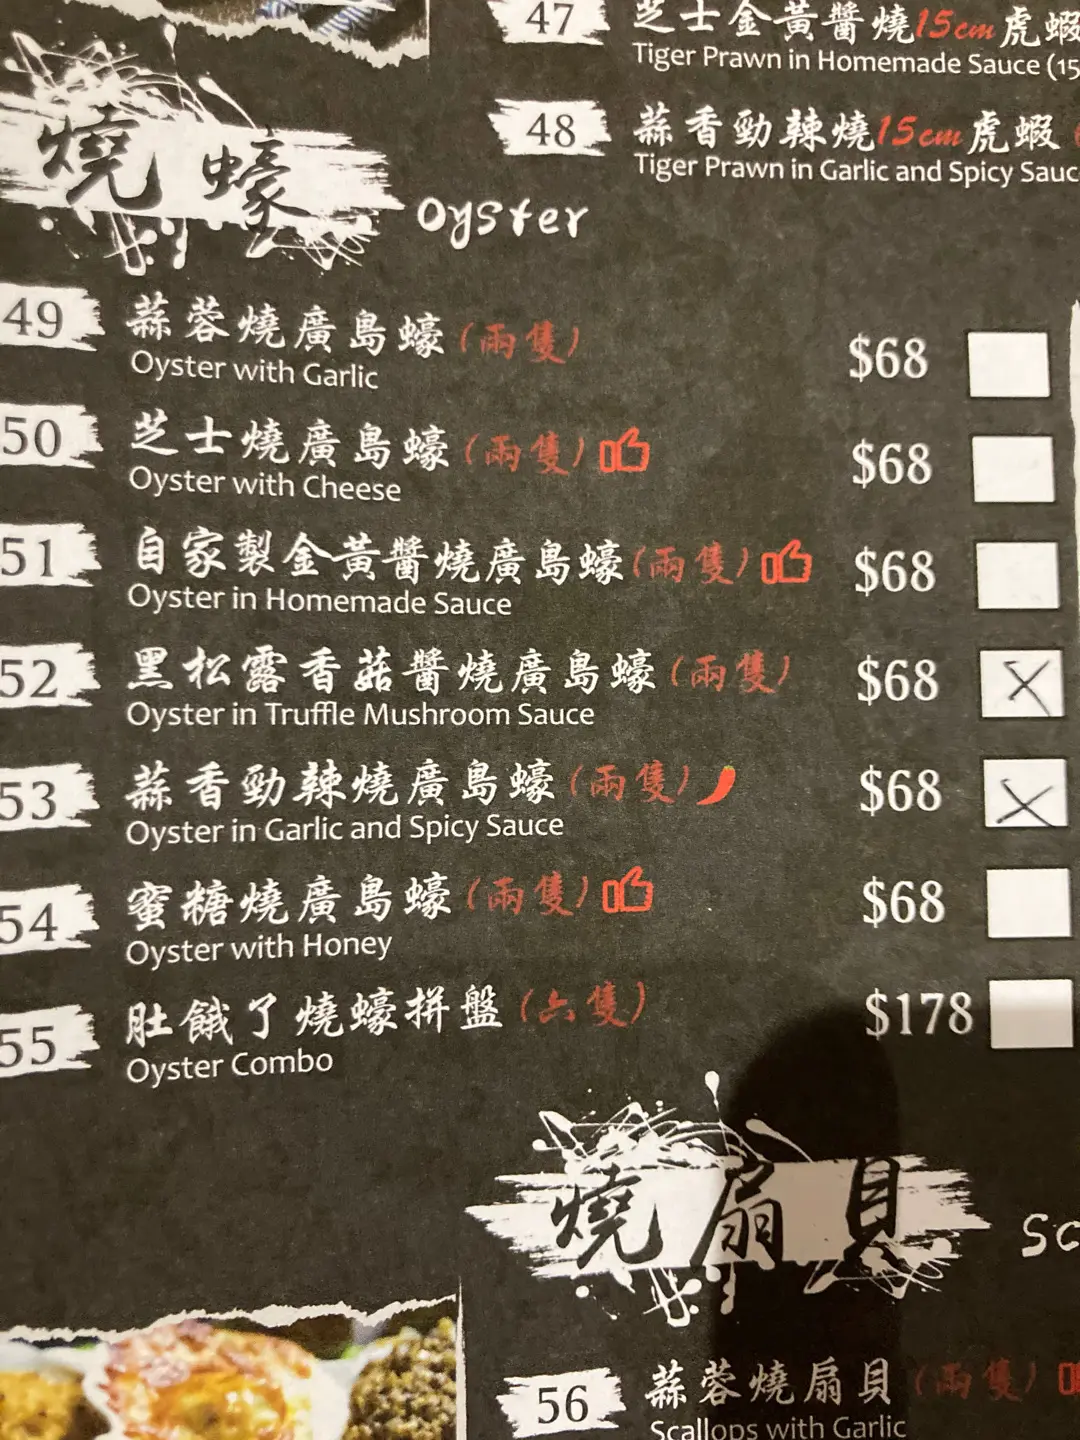 47
芝士金黃醬燒15cm虎蝦
Tiger Prawn in Homemade Sauce (15
48
蒜香勁辣燒15cm虎蝦
Tiger Prawn in Garlic and Spicy Sauc
燒蠔
Oyster
49
蒜蓉燒廣島蠔(兩隻)
$68
Oyster with Garlic
50
芝士燒廣島蠔(兩隻)
$68
Oyster with Cheese
51
自家製金黃醬燒廣島蠔(兩隻)
$68
Oyster in Homemade Sauce
52
黑松露香菇醬燒廣島蠔(兩隻)
$68
X
Oyster in Truffle Mushroom Sauce
53
蒜香勁辣燒廣島蠔(兩隻)
$68
X
Oyster in Garlic and Spicy Sauce
54
蜜糖燒廣島蠔(兩隻)
$68
Oyster with Honey
55
肚餓了燒蠔拼盤(六隻)
$178
Oyster Combo
燒扇貝
Sc
56
蒜蓉燒扇貝(兩隻)
Scallops with Garlic